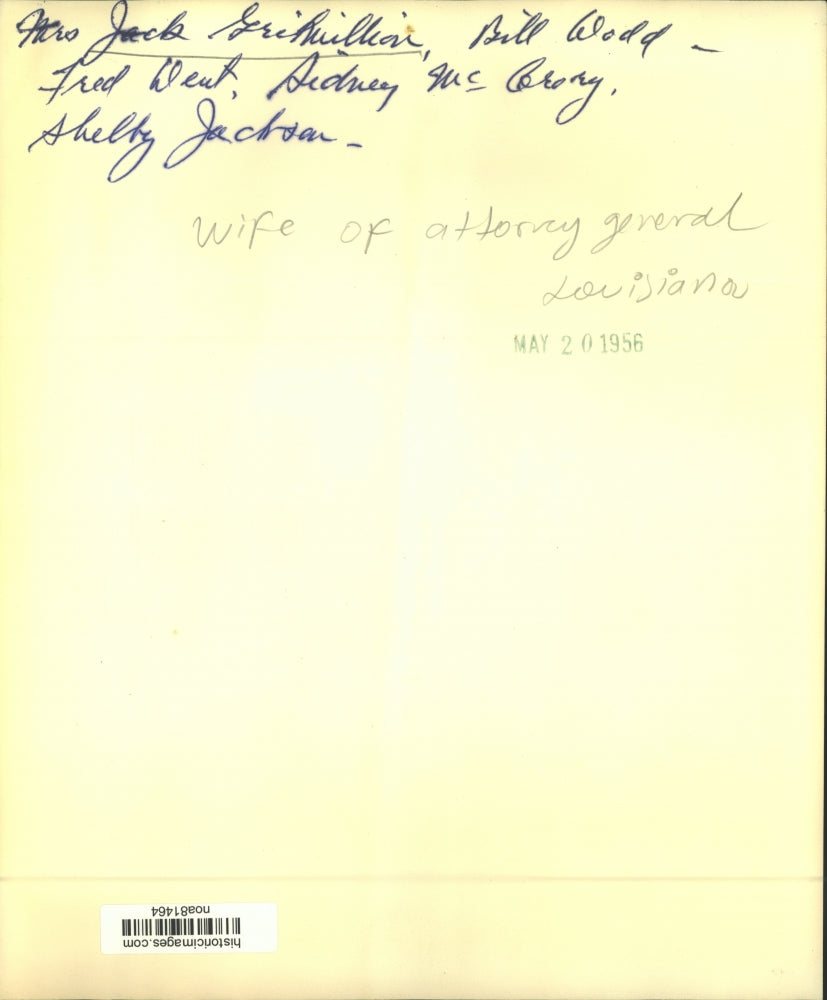 Mrs Jack Gremillion, Bill Dodd -
Fred Dent, Sidney Mc Crory,
Shelby Jackson -
wife of attorney general
Louisiana
MAY 20 1956
historicimages.com
noa81464